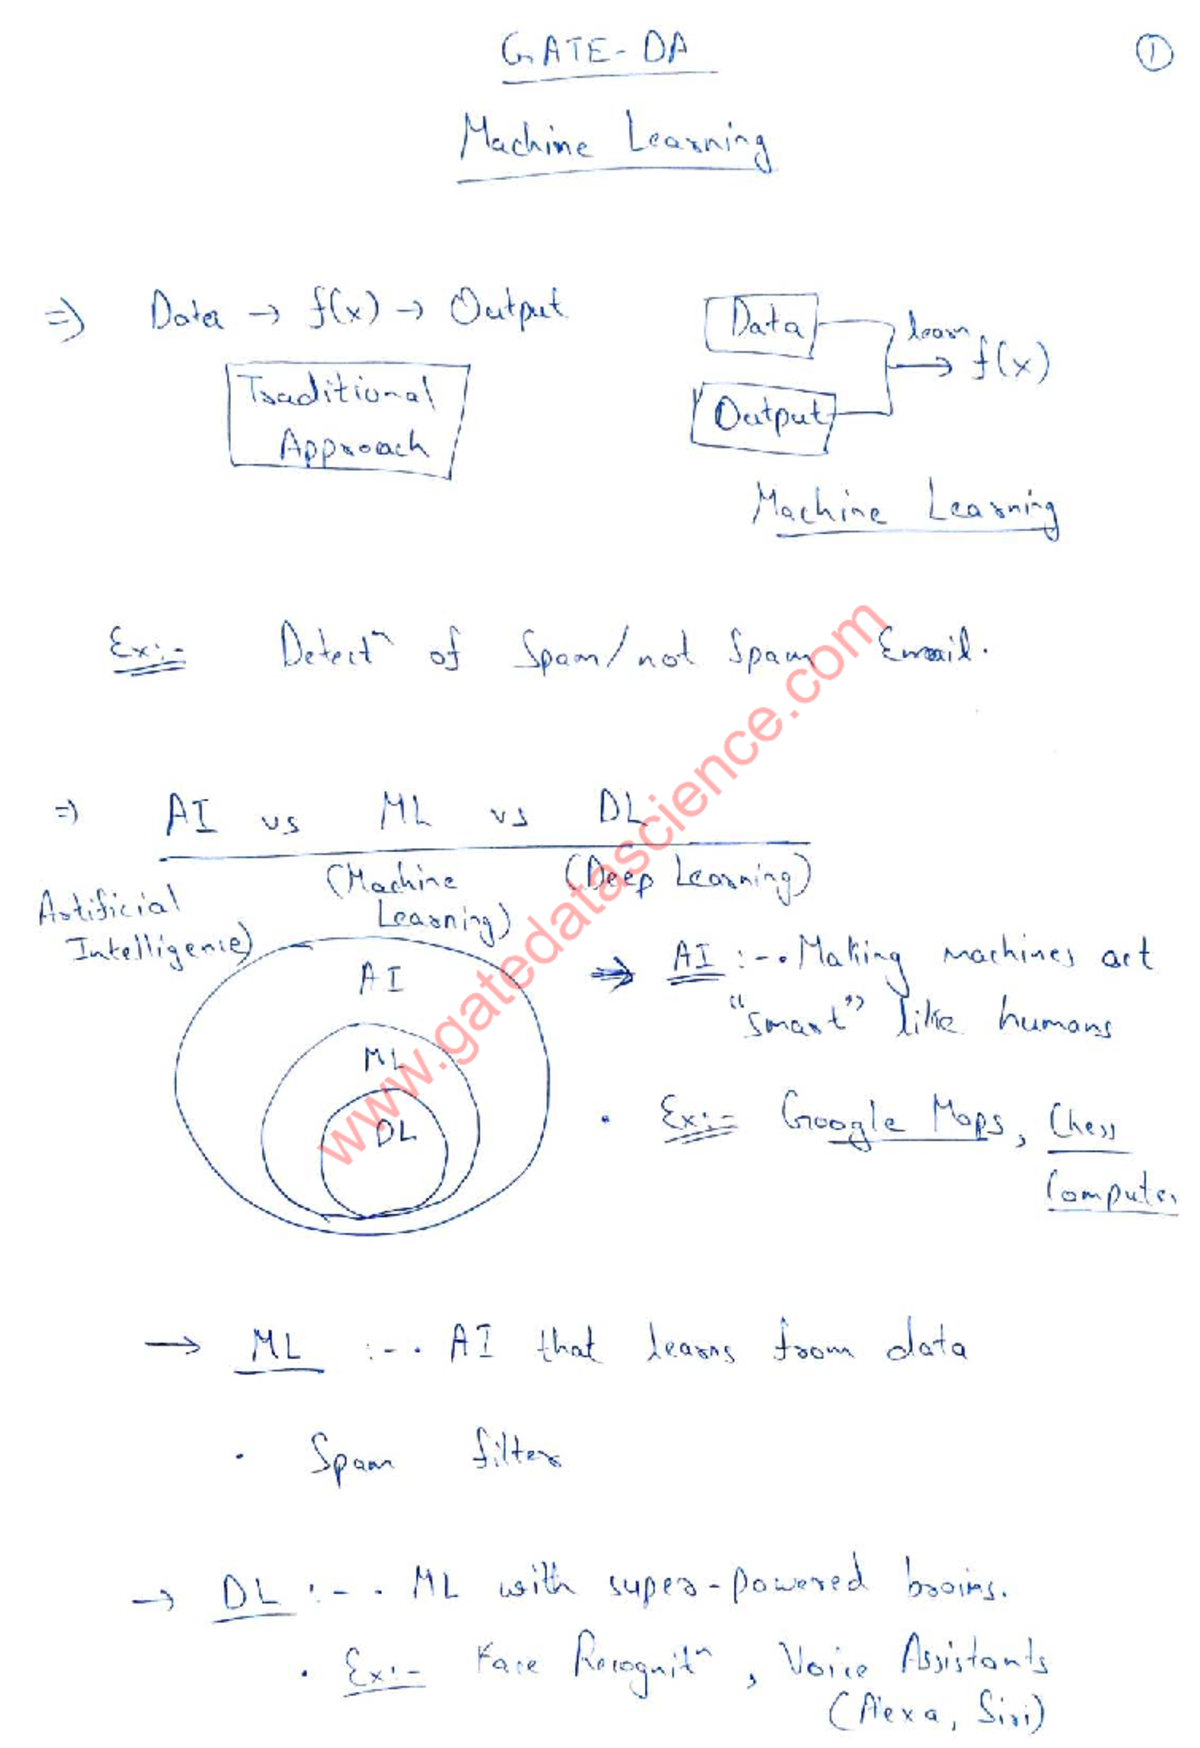 GATE-DA
1
Machine Learning
⇒ Data → f(x) → Output
Traditional
Approach
Data
Output
learn
f(x)
Machine Learning
Ex:- Detectⁿ of Spam/not Spam Email.
⇒ AI vs ML vs DL
Artificial
Intelligence)
(Machine
Learning)
(Deep Learning)
AI
ML
DL
⇒ AI :-• Making machines act
"smart" like humans
• Ex:- Google Maps, Chess
Computer
→ ML :-• AI that learns from data
• Spam filter
→ DL :-• ML with super-powered brains.
• Ex:- Face Recognitⁿ, Voice Assistants
(Alexa, Siri)
www.gatedatascience.com